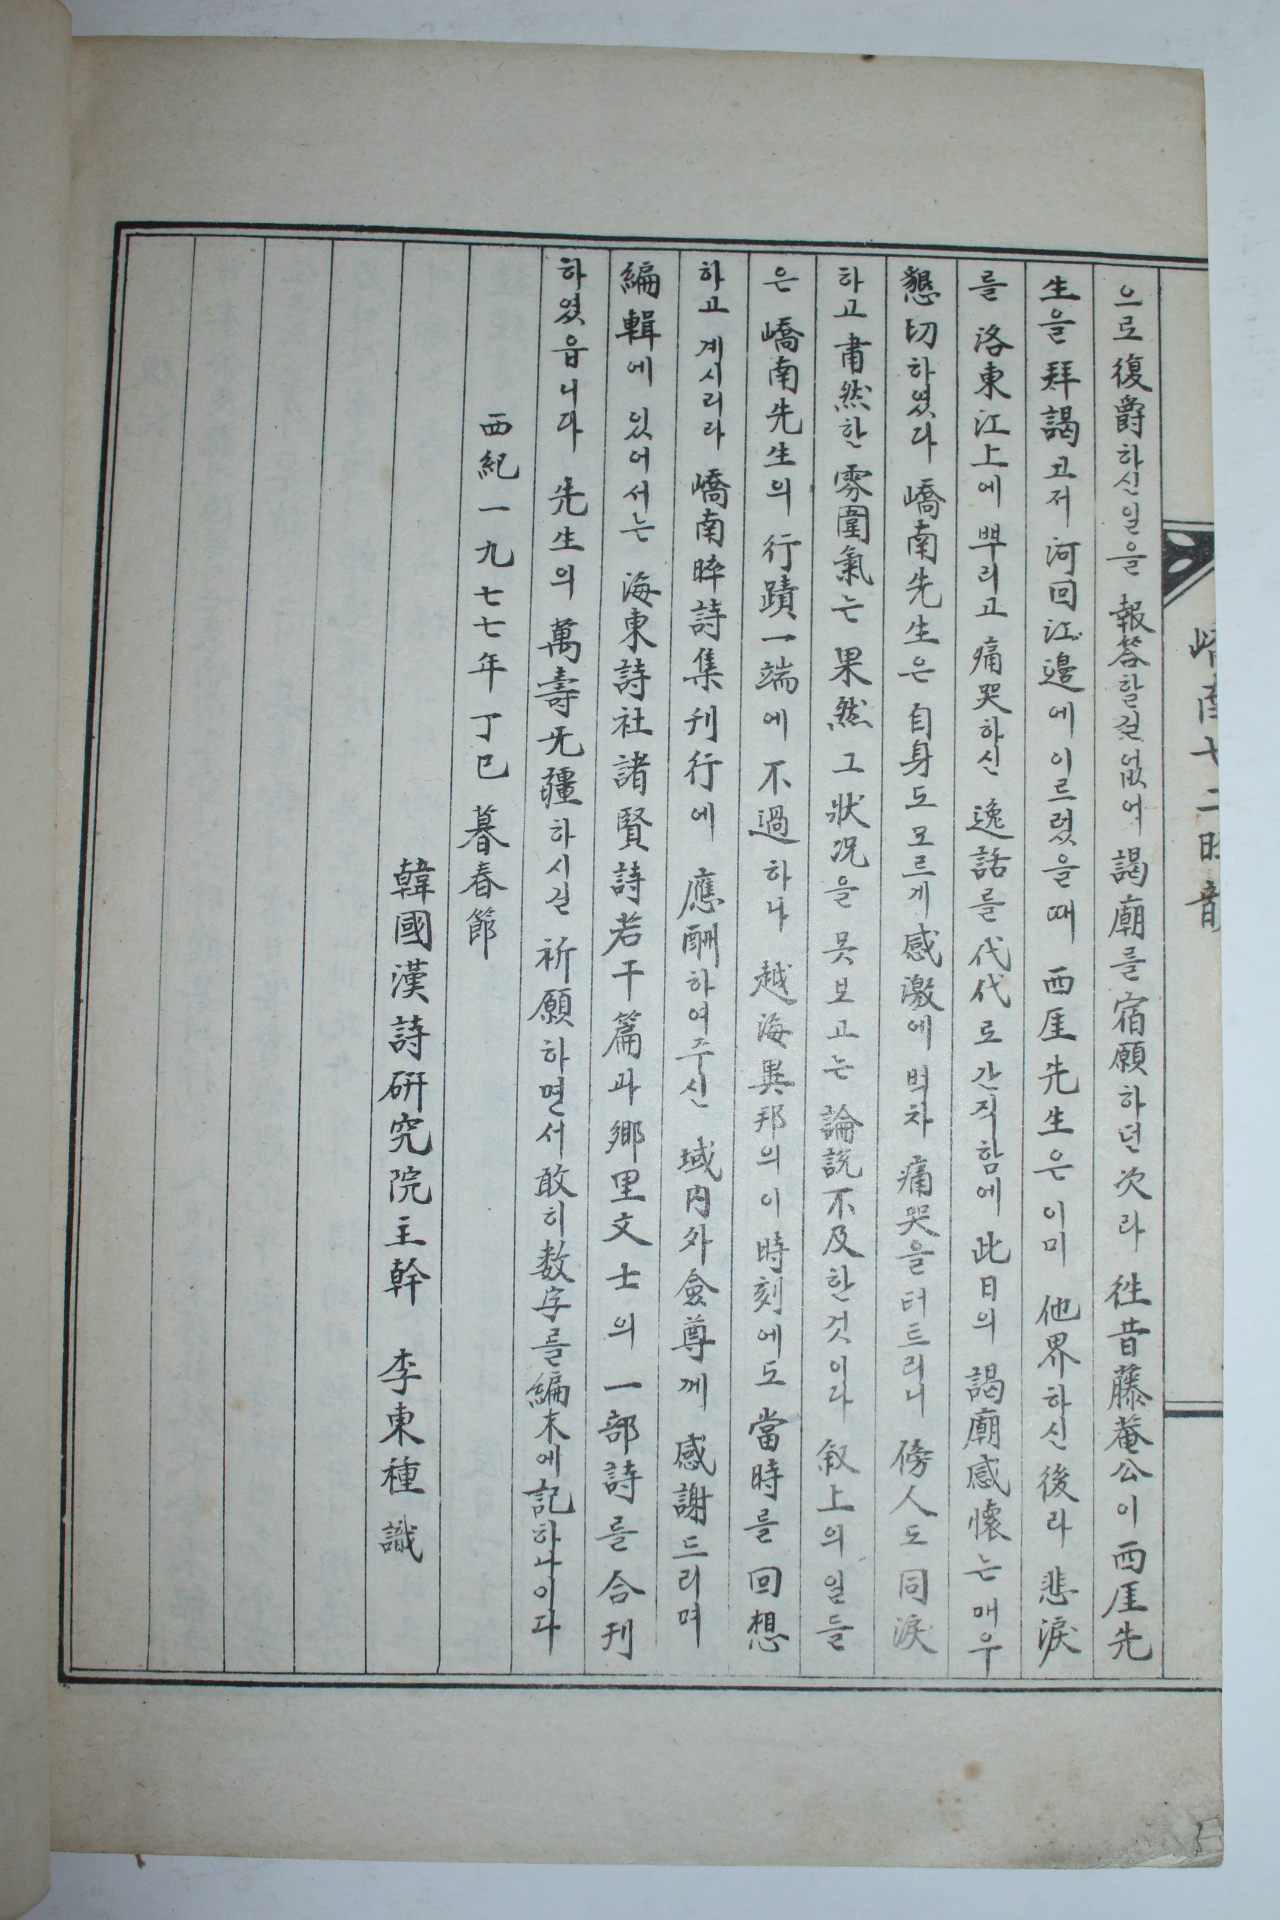 嶠南七二晬韻
으로 復爵하신 일을 報答할 길 없어 謁廟를 宿願하던 次라 往昔 藤菴公이 西厓先
生을 拜謁코저 河回江邊에 이르렀을 때 西厓先生은 이미 他界하신 後라 悲淚
를 洛東江上에 뿌리고 痛哭하신 逸話를 代代로 간직함에 此日의 謁廟感懷는 매우
懇切하였다 嶠南先生은 自身도 모르게 感激에 벅차 痛哭을 터트리니 傍人도 同淚
하고 肅然한 雰圍氣는 果然 그 狀況을 못보고는 論說不及한 것이다 叙上의 일들
은 嶠南先生의 行蹟一端에 不過하나 越海異邦의 이 時刻에도 當時를 回想
하고 계시리라 嶠南晬詩集 刊行에 應酬하여주신 域內外 僉尊께 感謝드리며
編輯에 있어서는 海東詩社諸賢詩若干篇과 鄕里文士의 一部詩를 合刊
하였읍니다 先生의 萬壽无疆하시길 祈願하면서 敢히 数字를 編末에 記하나이다
西紀一九七七年 丁巳 暮春節
韓國漢詩硏究院主幹 李東種 識